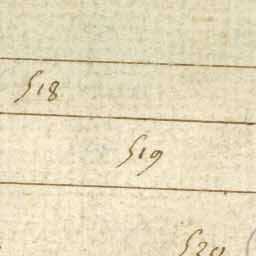 518
519
520